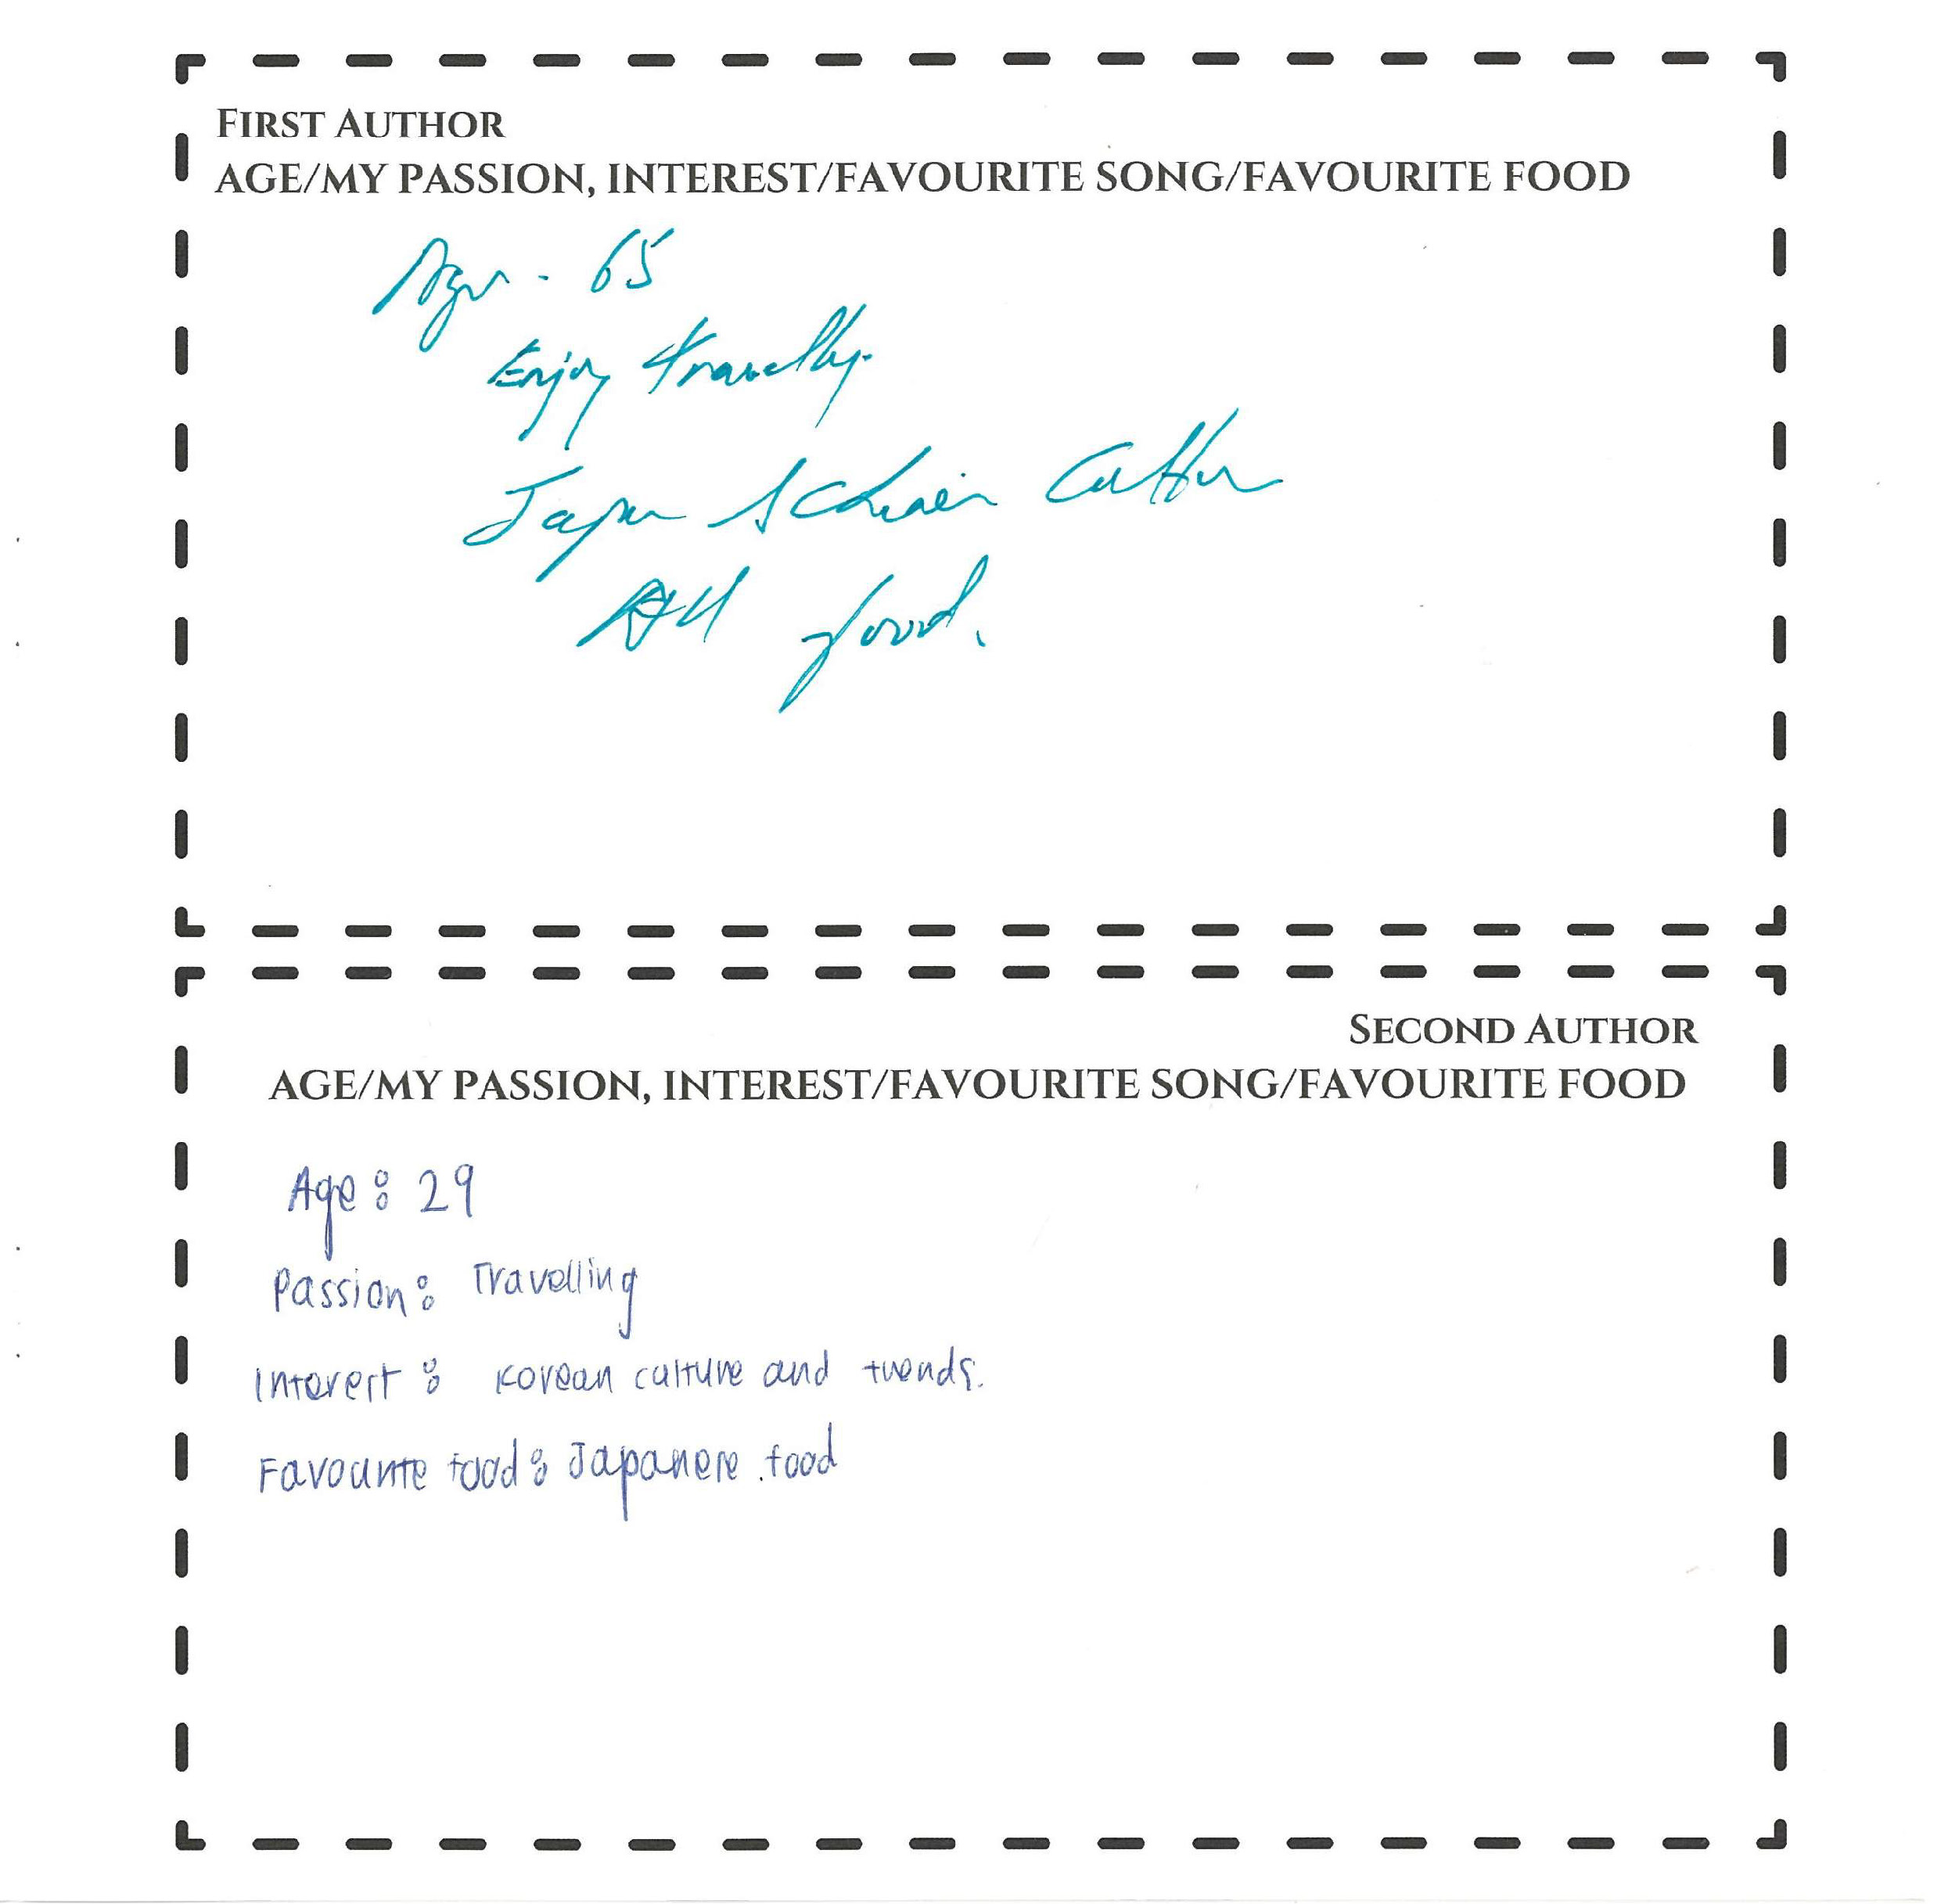 FIRST AUTHOR
AGE/MY PASSION, INTEREST/FAVOURITE SONG/FAVOURITE FOOD
Age - 65
Enjoy travelly.
Japan & Chinese Culture
All food.
SECOND AUTHOR
AGE/MY PASSION, INTEREST/FAVOURITE SONG/FAVOURITE FOOD
Age: 29
Passion: Travelling
Interest: Korean culture and trends.
Favourite food: Japanese food